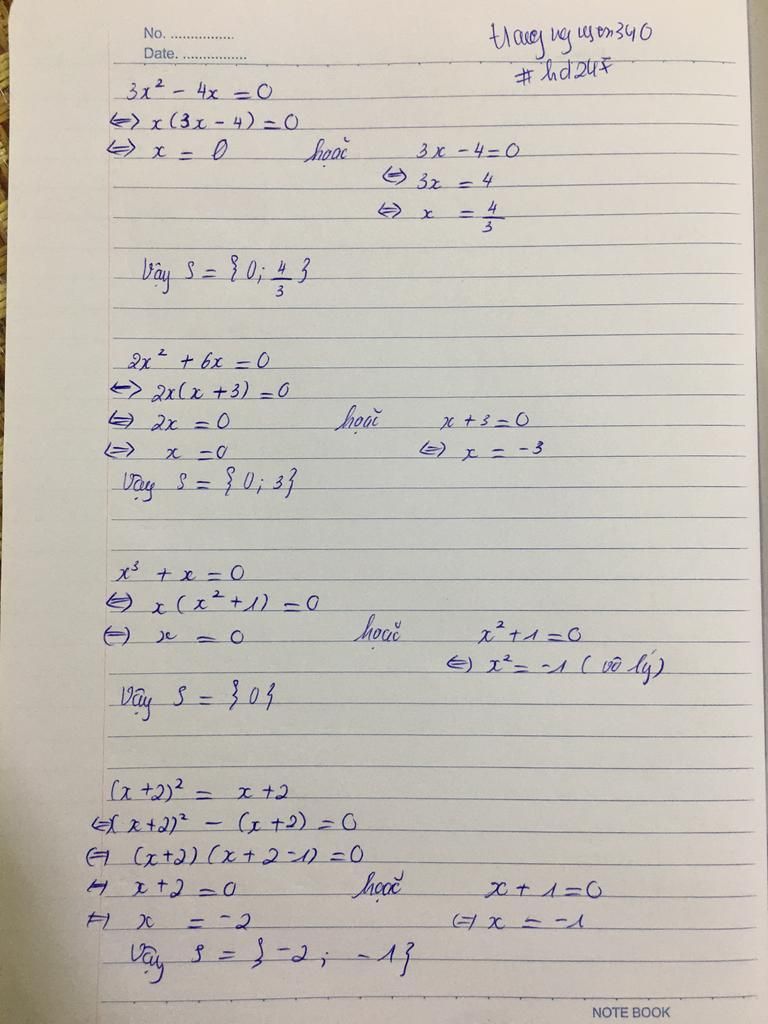 No. ................
Date. ................
trangnguyen340
#hd247
3x² - 4x = 0
⇔ x(3x - 4) = 0
⇔ x = 0 hoặc 3x - 4 = 0
⇔ 3x = 4
⇔ x = 4/3
Vậy S = {0; 4/3}
2x² + 6x = 0
⇔ 2x(x + 3) = 0
⇔ 2x = 0 hoặc x + 3 = 0
⇔ x = 0 ⇔ x = -3
Vậy S = {0; 3}
x³ + x = 0
⇔ x(x² + 1) = 0
⇔ x = 0 hoặc x² + 1 = 0
⇔ x² = -1 (vô lý)
Vậy S = {0}
(x + 2)² = x + 2
⇔ (x + 2)² - (x + 2) = 0
⇔ (x + 2)(x + 2 - 1) = 0
⇔ x + 2 = 0 hoặc x + 1 = 0
⇔ x = -2 ⇔ x = -1
Vậy S = {-2; -1}
NOTE BOOK